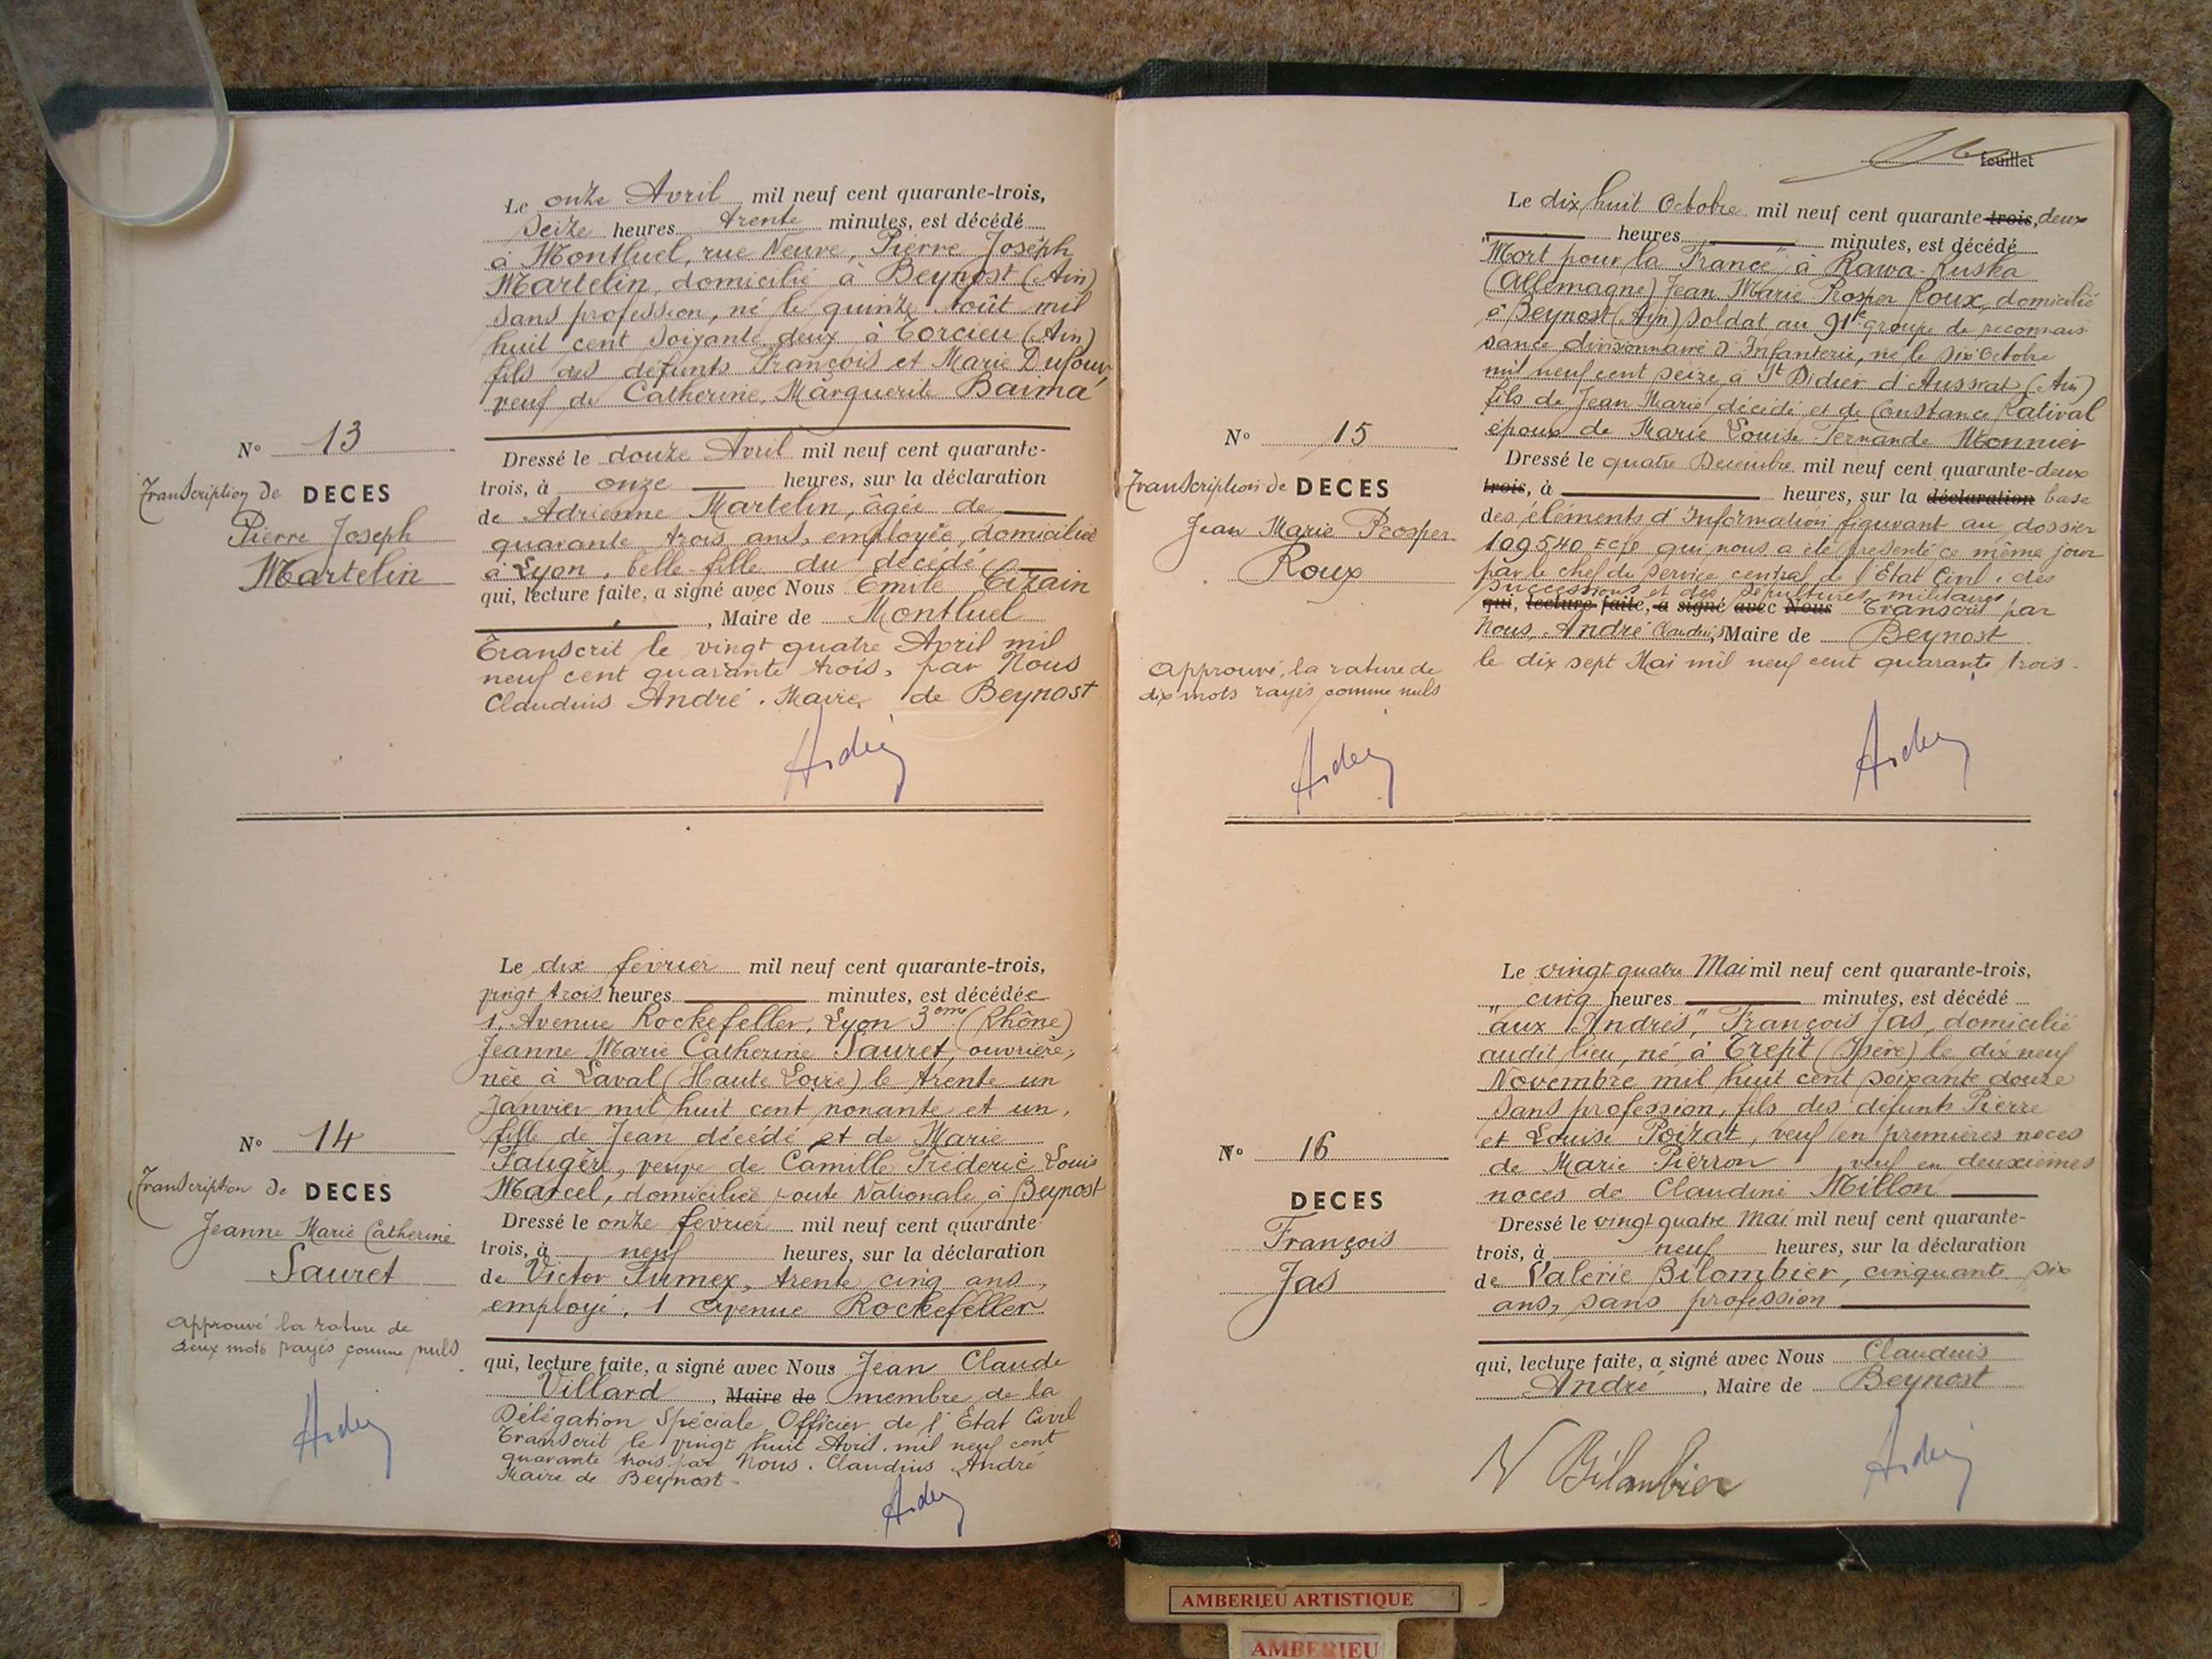 Le onze Avril mil neuf cent quarante-trois,
Seize heures trente minutes, est décédé
à Montluel, rue Neuve, Pierre Joseph
Martelin, domicilié à Beynost (Ain)
sans profession, né le quinze Août mil
huit cent soixante deux à Torcieu (Ain)
fils des défunts François et Marie Dufour,
veuf de Catherine, Marguerite Baima
N° 13
Transcription de DECES
Pierre Joseph
Martelin
Dressé le douze Avril mil neuf cent quarante-
trois, à onze heures, sur la déclaration
de Adrienne Martelin, âgée de
quarante trois ans, employée, domiciliée
à Lyon, belle-fille du décédé
qui, lecture faite, a signé avec Nous Emile
, Maire de Montluel
Transcrit le vingt quatre Avril mil
neuf cent quarante trois, par Nous
Claudius André. Maire de Beynost
Le dix février mil neuf cent quarante-trois,
vingt trois heures minutes, est décédée
1, Avenue Rockefeller, Lyon 3eme (Rhône)
Jeanne Marie Catherine Sauret, ouvrière,
née à Laval (Haute Loire) le trente un
Janvier mil huit cent nonante et un,
fille de Jean décédé et de Marie
Faugère, veuve de Camille Fréderic Louis
Marcel, domiciliée route Nationale à Beynost
N° 14
Transcription de DECES
Jeanne Marie Catherine
Sauret
Approuvé la rature de
deux mots rayés comme nuls
Dressé le onze février mil neuf cent quarante
trois, à neuf heures, sur la déclaration
de Victor Fumex, trente cinq ans,
employé, 1 avenue Rockefeller
qui, lecture faite, a signé avec Nous Jean Claude
Villard, Maire de membre de la
Délégation Spéciale Officier de l'Etat Civil
Transcrit le vingt huit Avril. mil neuf cent
quarante trois par Nous. Claudius André
Maire de Beynost
feuillet
Le dix huit Octobre mil neuf cent quarante-trois, deux
heures minutes, est décédé
"Mort pour la France" à Rawa-Ruska
(Allemagne) Jean Marie Prosper Roux, domicilié
à Beynost (Ain) Soldat au 91e groupe de reconnais
sance divisionnaire d'Infanterie, né le six Octobre
mil neuf cent seize à St Didier d'Aussiat (Ain)
fils de Jean Marie décédé et de Constance Rativat
époux de Marie Louise Fernande Monnier
N° 15
Transcription de DECES
Jean Marie Prosper
Roux
Approuvé, la rature de
dix mots rayés comme nuls
Dressé le quatre Decembre mil neuf cent quarante-deux
trois, à heures, sur la déclaration base
des éléments d'Information figurant au dossier
109540 qui nous a été présenté ce même jour
par le chef du Service central de l'Etat Civil, des
Successions et des Sépultures militaires
qui, lecture faite, a signé avec Nous Transcrit par
Nous, André Claudius, Maire de Beynost
le dix sept Mai mil neuf cent quarante trois.
Le vingt quatre Mai mil neuf cent quarante-trois,
cinq heures minutes, est décédé
"aux Andrés", François Jas, domicilié
audit lieu, né à Trept (Isère) le dix neuf
Novembre mil huit cent soixante douze
sans profession, fils des défunts Pierre
et Louise Poizat, veuf en premières noces
de Marie Pierron veuf en deuxièmes
noces de Claudine Millon
N° 16
DECES
François
Jas
Dressé le vingt quatre Mai mil neuf cent quarante-
trois, à neuf heures, sur la déclaration
de Valerie Bilombier, cinquante six
ans, sans profession
qui, lecture faite, a signé avec Nous Claudius
André, Maire de Beynost
V Bilombier
AMBERIEU ARTISTIQUE
AMBERIEU